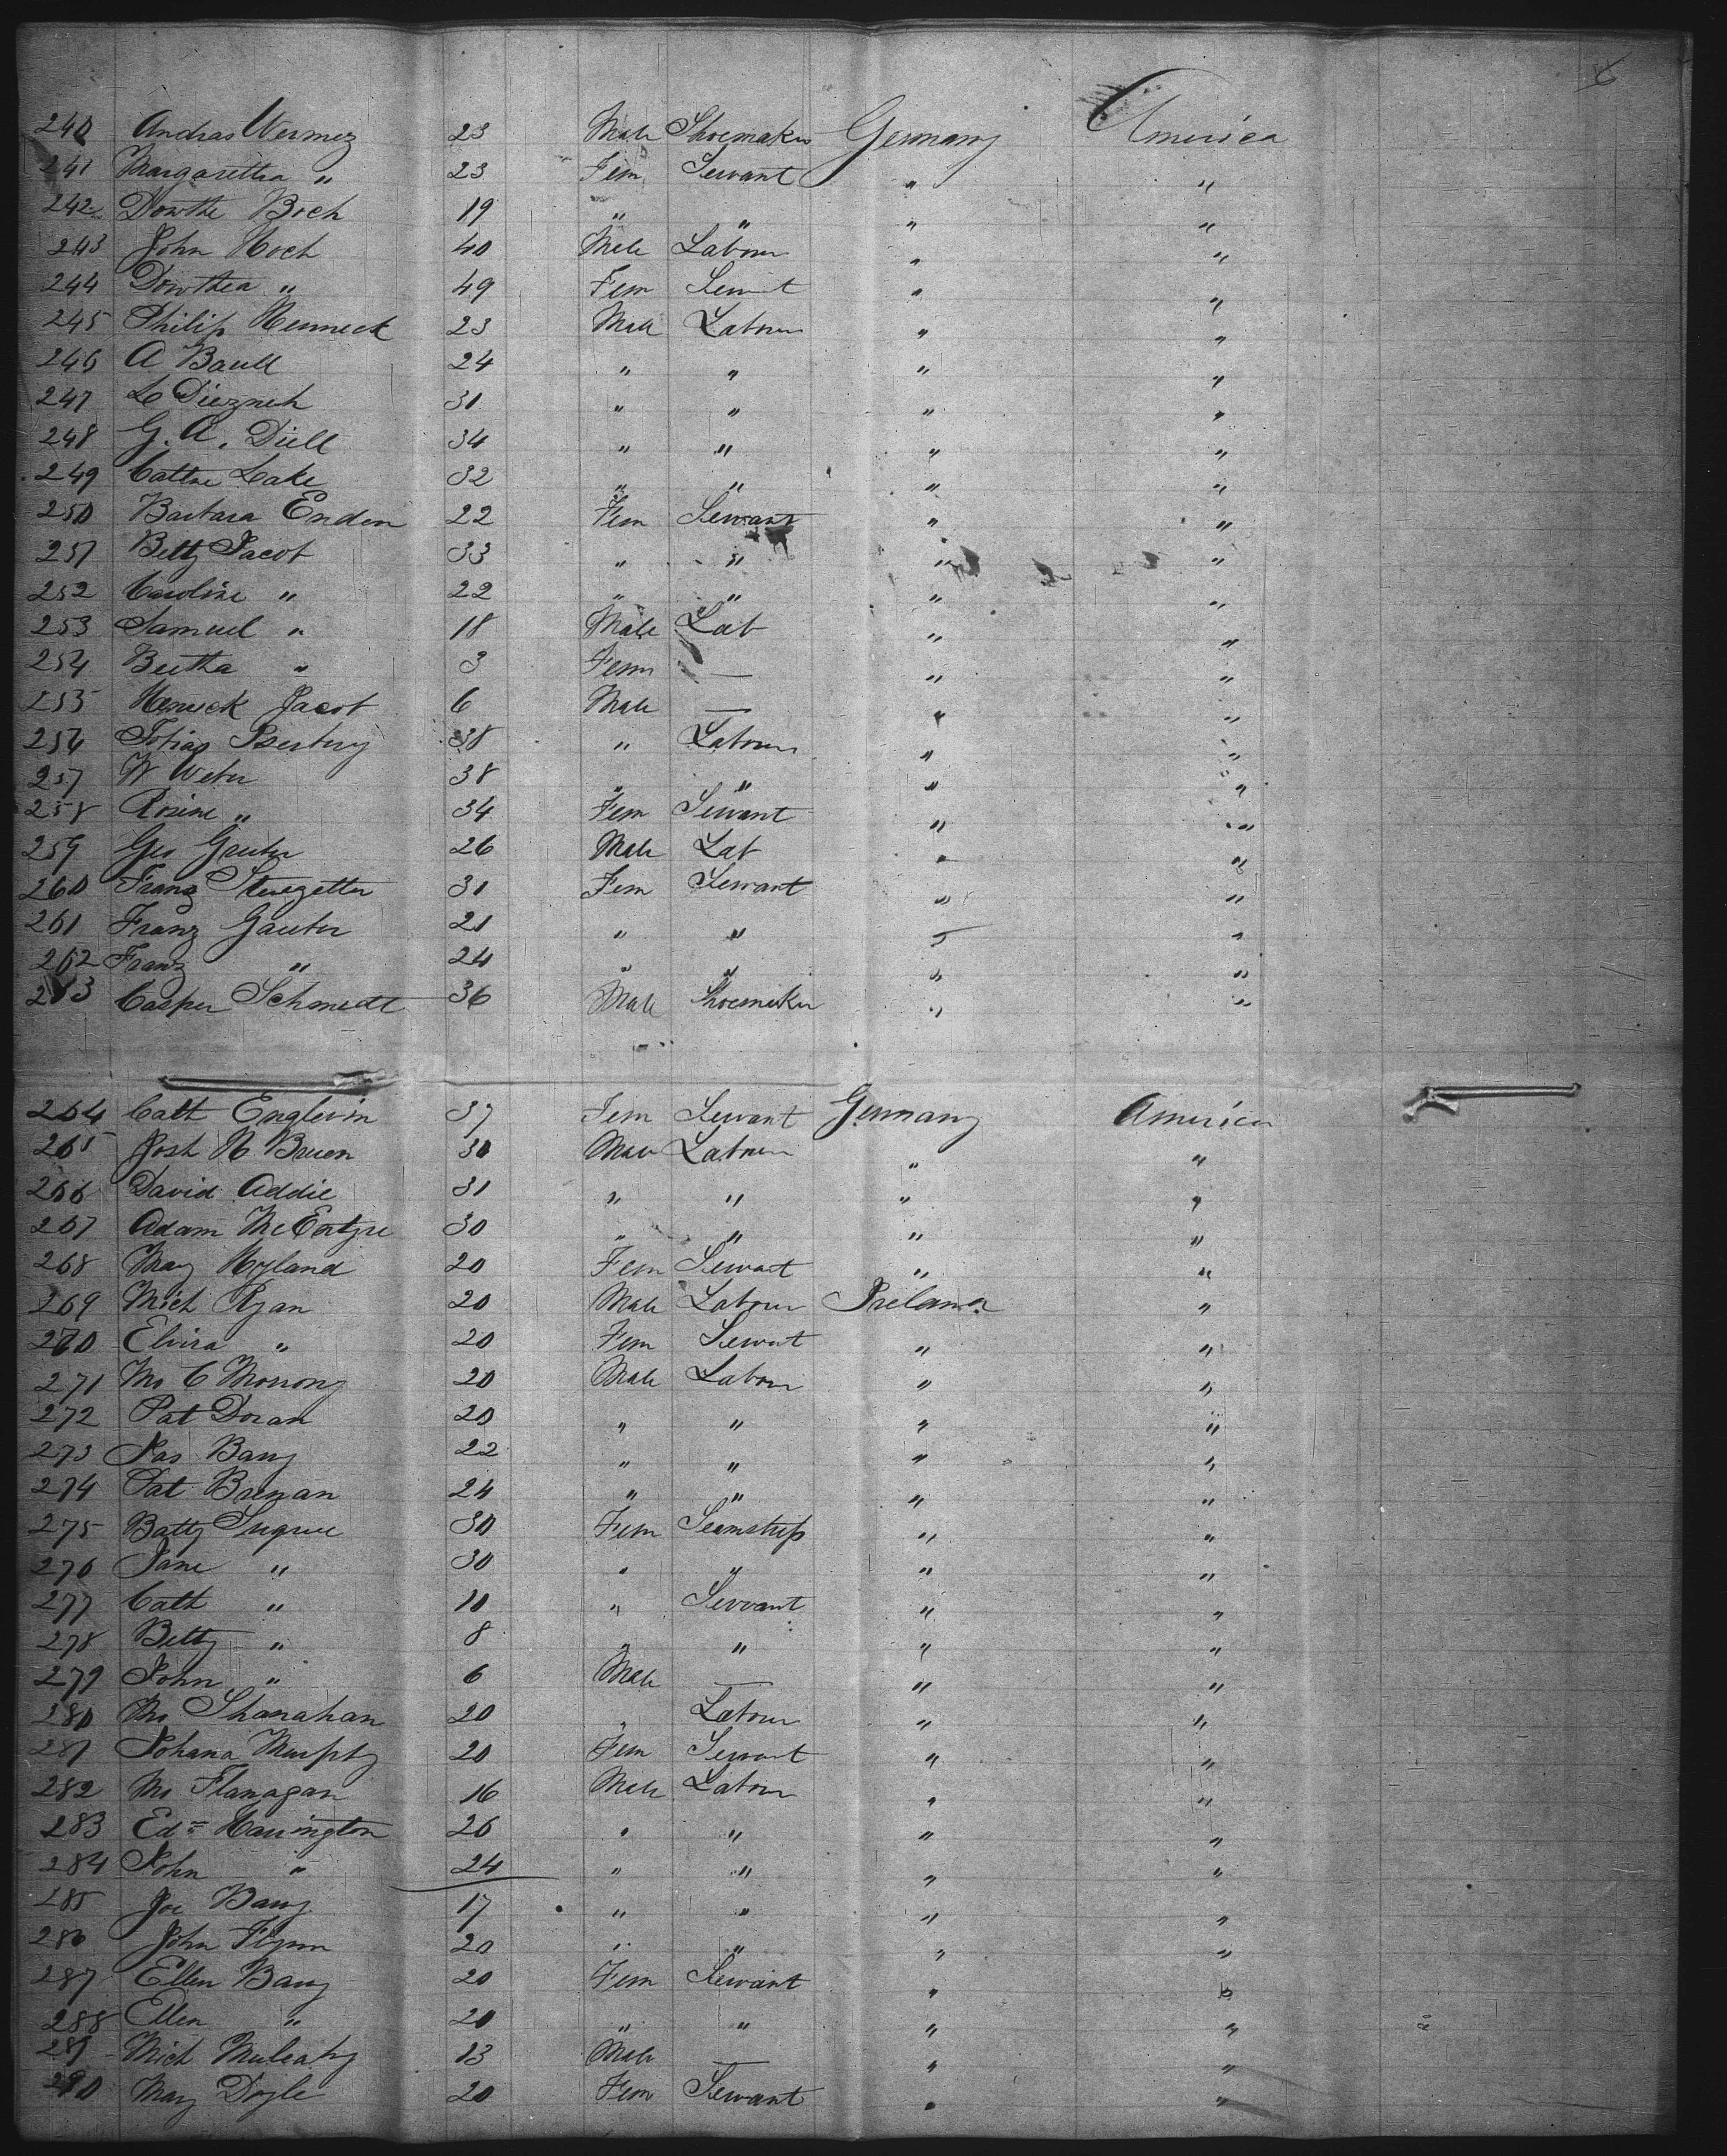 240 Andras Wermez 23 Male Shoemaker Germany America
241 Margaretha " 23 Fem Servant " "
242 Dowthe Boch 19 " " " "
243 John Hoch 40 Male Labour " "
244 Dowthea " 49 Fem Servnt " "
245 Philip Henneck 23 Male Labour " "
246 A Baull 24 " " " "
247 L Dieznech 31 " " " "
248 G. A. Diell 34 " " " "
249 Cattne Lake 32 " " " "
250 Barbara Enden 22 Fem Servant " "
251 Betty Jacob 33 " " " "
252 Caroline " 22 " " " "
253 Samuel " 18 Male Lab " "
254 Bertha " 3 Fem — " "
255 Henreck Jacob 6 Male — " "
256 Tobias 38 " Labour " "
257 W Weber 38 " " " "
258 Rosine " 34 Fem Servant " "
259 Geo Gruber 26 Male Lab " "
260 Franz 31 Fem Servant " "
261 Franz Gauber 21 " " " "
262 Franz " 24 " " " "
263 Casper Schmedt 36 Male Shoemaker " "
264 Cath Englevin 37 Fem Servant Germany America
265 Josh H Bruen 30 Male Labour " "
266 David Addie 31 " " " "
267 Adam McEntyre 30 " " " "
268 Mary Hyland 20 Fem Servant " "
269 Mich Ryan 20 Male Labour Ireland "
270 Elvira " 20 Fem Servant " "
271 Mo C Morrony 20 Male Labour " "
272 Pat Doran 20 " " " "
273 Jas Barry 22 " " " "
274 Pat Brenan 24 " " " "
275 Batty Sugrue 30 Fem Seamstress " "
276 Jane " 30 " " " "
277 Cath " 10 " Servant " "
278 Betty " 8 " " " "
279 John " 6 Male — " "
280 Mo Shanahan 20 " Labour " "
281 Johana Murphy 20 Fem Servant " "
282 Mo Flanagan 16 Male Labour " "
283 Edd Harrington 26 " " " "
284 John " 24 " " " "
285 Joe Barry 17 " " " "
286 John Flynn 20 " " " "
287 Ellen Barry 20 Fem Servant " "
288 Ellen " 20 " " " "
289 Mich Mulcahy 13 Male — " "
290 Mary Doyle 20 Fem Servant " "